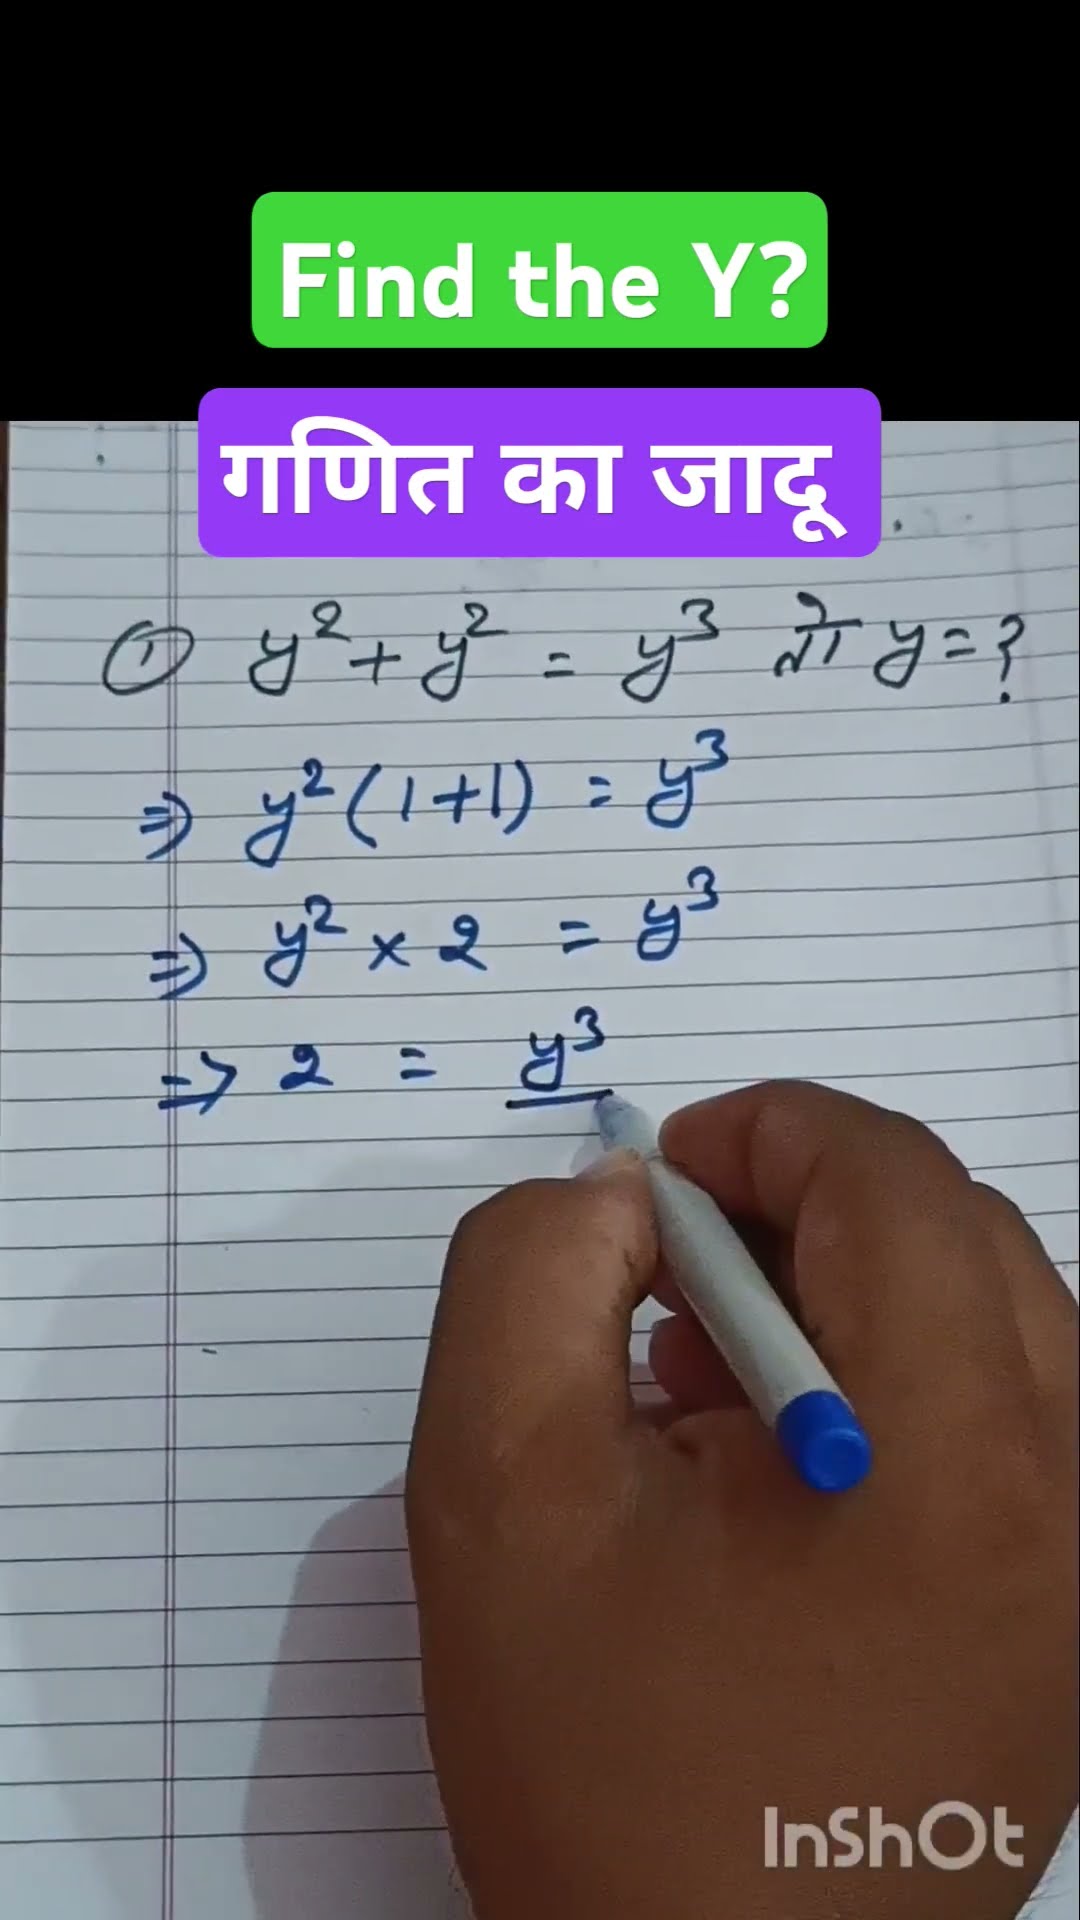 Find the Y?
गणित का जादू
① y² + y² = y³ तो y = ?
⇒ y² (1+1) = y³
⇒ y² × 2 = y³
⇒ 2 = y³
InShOt